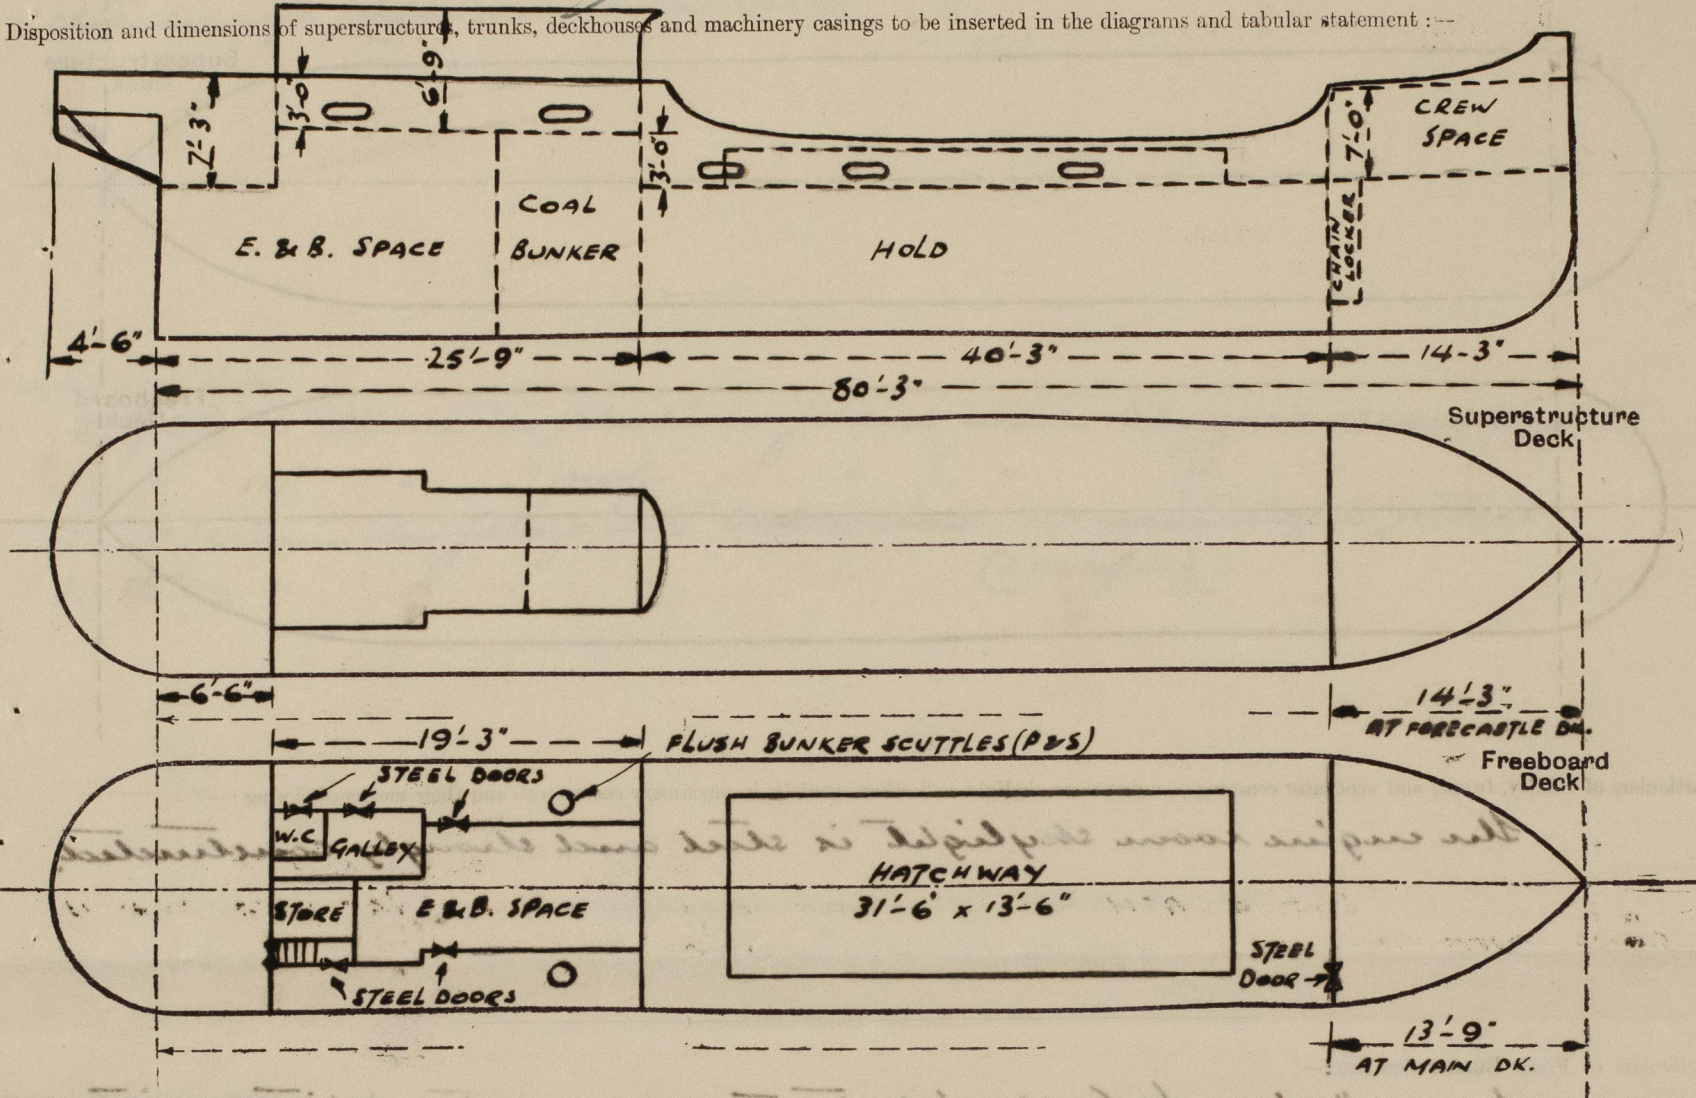 Disposition and dimensions of superstructures, trunks, deckhouses and machinery casings to be inserted in the diagrams and tabular statement :—
7'-3"
3'-0"
6'-9"
3'-0"
7'-0"
CREW
SPACE
COAL
BUNKER
E. & B. SPACE
HOLD
CHAIN
LOCKER
4'-6"
25'-9"
40'-3"
14-3"
80'-3"
Superstructure
Deck
6'-6"
14'-3"
AT FORECASTLE DK.
19'-3"
FLUSH BUNKER SCUTTLES (P & S)
Freeboard
Deck
STEEL DOORS
W.C
GALLEY
STORE
E & B. SPACE
HATCHWAY
31'-6" x 13'-6"
STEEL
DOOR
STEEL DOORS
13'-9"
AT MAIN DK.